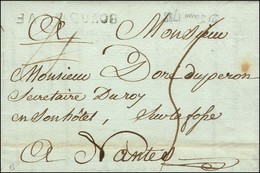 A Monsieur
Monsieur Doré duperon
Secretaire Du roy
en Son hôtel, Sur la fosse
A Nantes